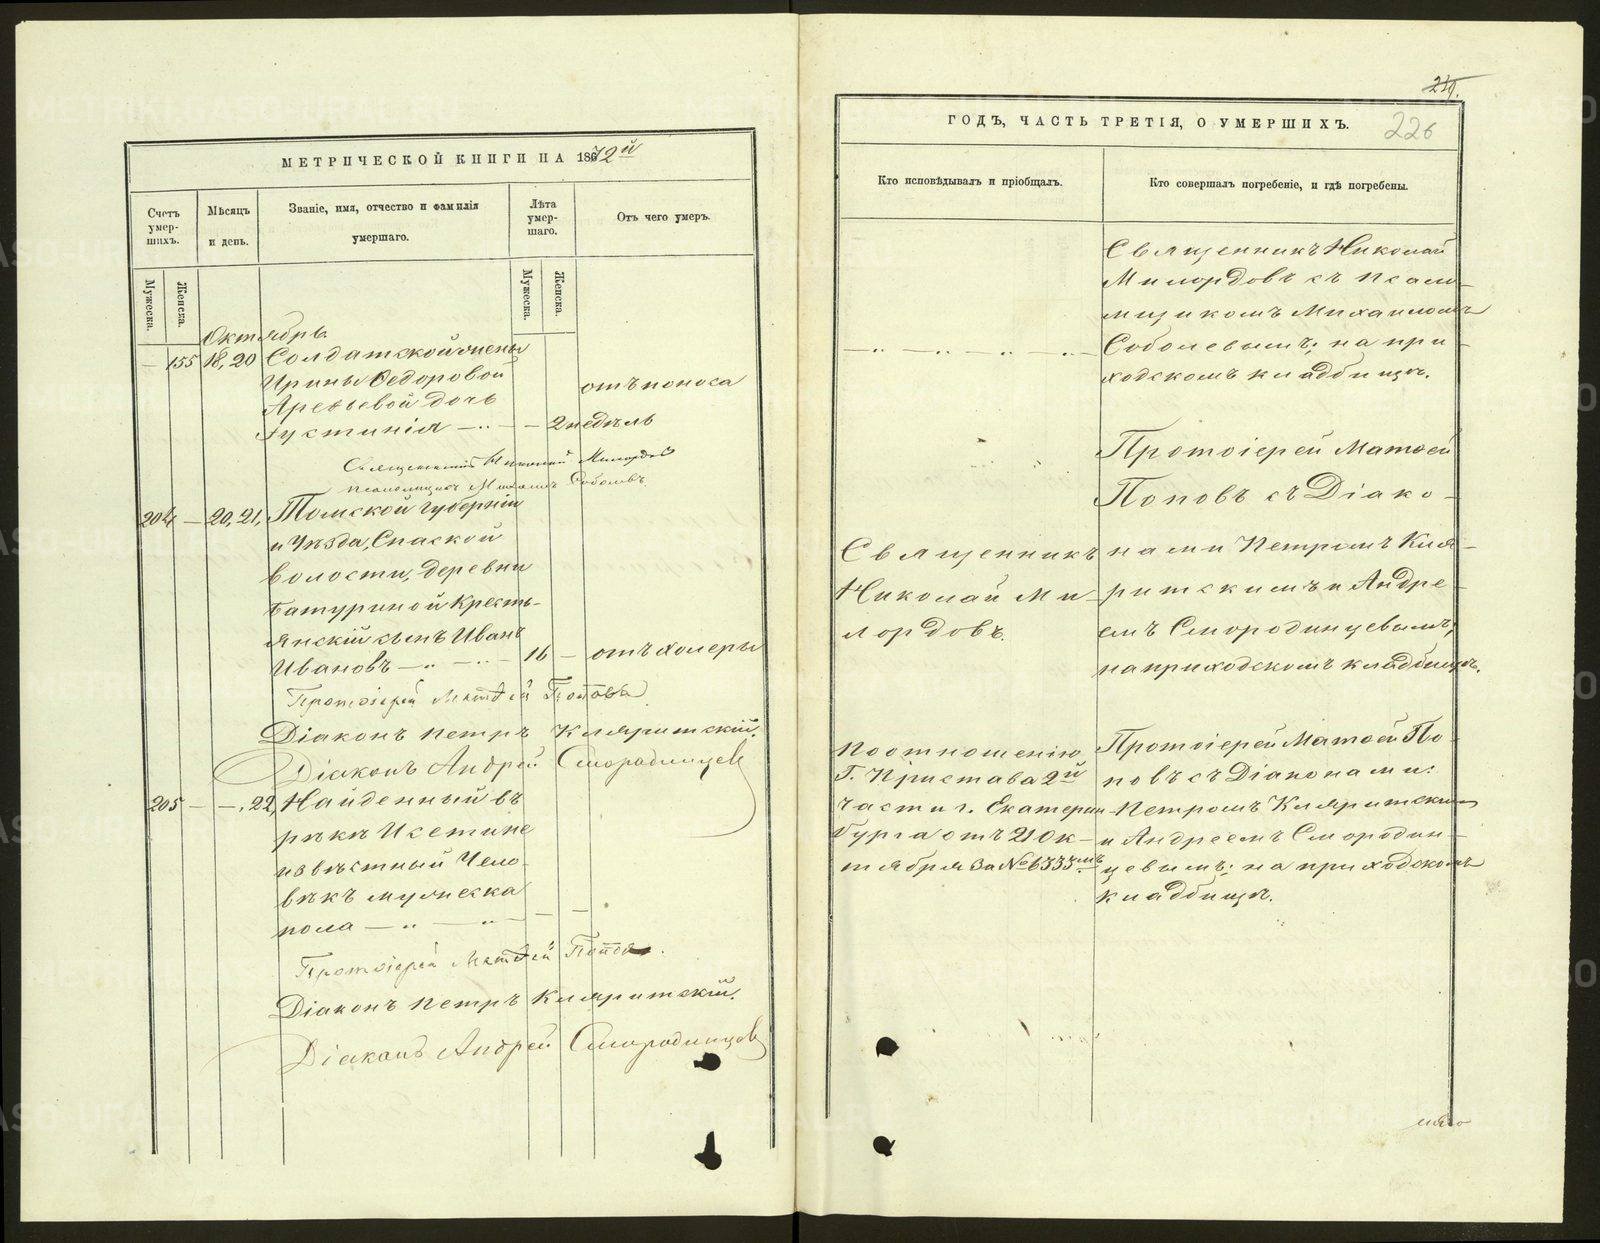 МЕТРИЧЕСКОЙ КНИГИ НА 1872й
Счетъ умер-шихъ.
Мѣсяцъ и день.
Званіе, имя, отчество и фамилія умершаго.
Лѣта умер-шаго.
Отъ чего умеръ.
Мужеска.
Женска.
Мужеска.
Женска.
Октябрь.
— 155 18, 20 Солдатской жены
Ирины Ѳедоровой
Арефьевой дочь
Іустинія — „ — — 2 недѣль
отъ поноса
Священникъ Николай Милордовъ
псаломщикъ Михаилъ Соболевъ.
204 — 20, 21, Томской губерніи
и Уѣзда, Спаской
волости, деревни
Батуриной Кресть-
янскій сынъ Иванъ
Ивановъ — „ — „ — 16 — отъ холеры
Протоіерей Матѳей Поповъ.
Діаконъ Петръ Кляритскій.
Діаконъ Андрей Смородинцевъ
205 — —, 22, Найденный въ
рѣкѣ Исети не
извѣстный Чело-
вѣкъ мужеска
пола — „ — „ — — —
Протоіерей Матѳей Поповъ.
Діаконъ Петръ Кляритскій.
Діаконъ Андрей Смородинцовъ
219.
226
ГОДЪ, ЧАСТЬ ТРЕТІЯ, О УМЕРШИХЪ.
Кто исповѣдывалъ и пріобщалъ.
Кто совершалъ погребеніе, и гдѣ погребены.
— „ — „ — „ — „ —
Священникъ Николай
Милордовъ съ псало-
мщикомъ Михаиломъ
Соболевымъ; на при-
ходскомъ кладбищѣ.
Священникъ
Николай Ми-
лордовъ.
Протоіерей Матѳей
Поповъ съ Діако-
нами Петромъ Кля-
ритскимъ и Андре-
емъ Смородинцевымъ;
на приходскомъ кладбищѣ.
По отношенію
Г. Пристава 2й
части г. Екатерин-
бурга отъ 21 Ок-
тября За № 6333мъ
Протоіерей Матѳей По-
повъ съ Діаконами:
Петромъ Кляритскимъ
и Андреемъ Смородин-
цевымъ; на приходскомъ
кладбищѣ.
METRIKI.GASO-URAL.RU